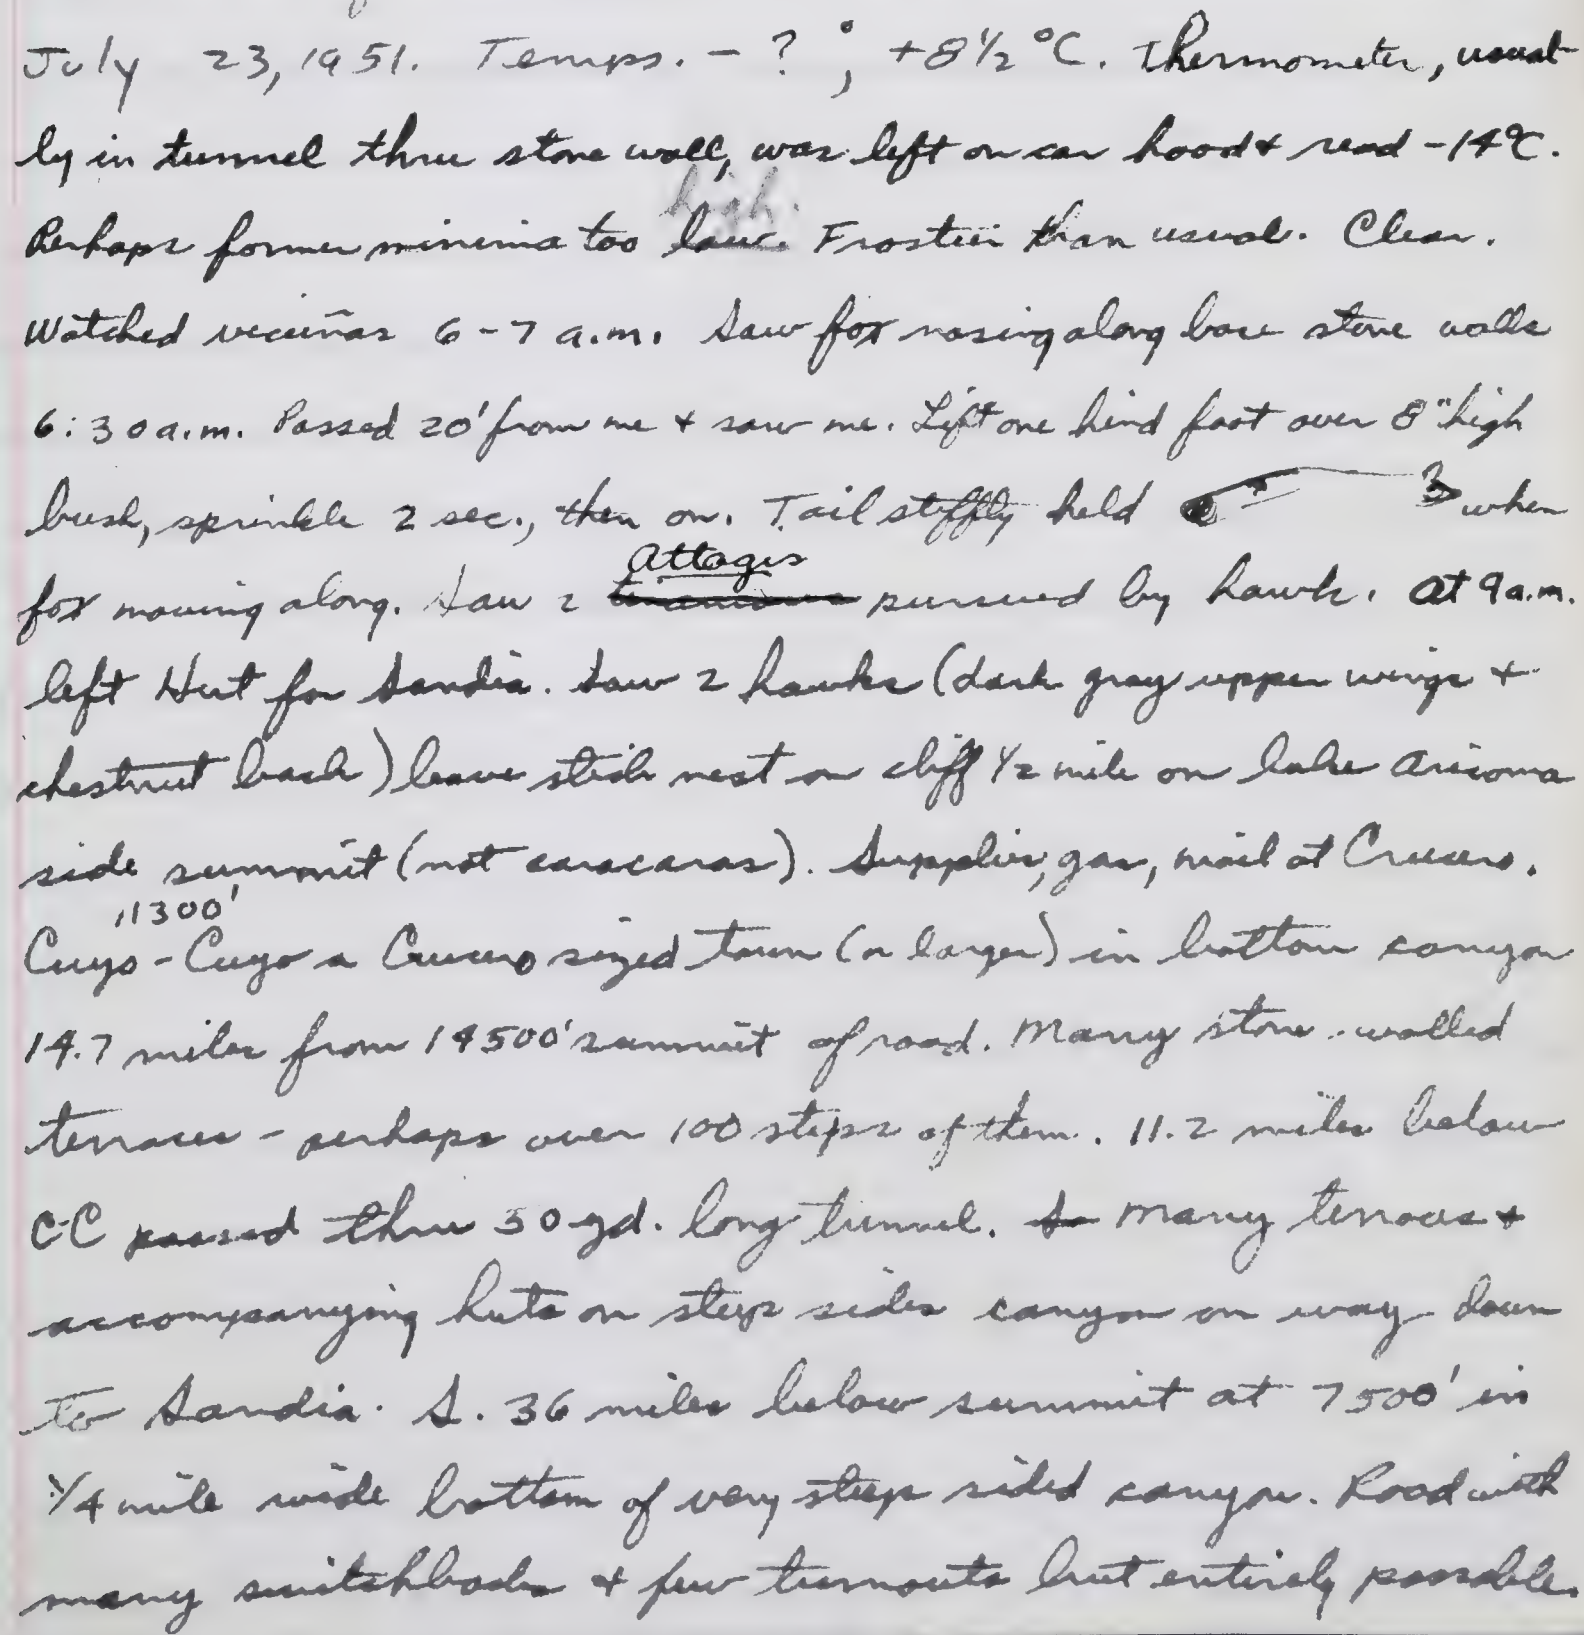 July 23, 1951. Temps. - ?°; +8½°C. Thermometer, usual-
ly in tunnel thru stone wall, was left on car hood & read -14°C.
high.
Perhaps former minima too low. Frostier than usual. Clear.
Watched vicuñas 6-7 a.m. Saw fox nosing along base stone walls
6:30 a.m. Passed 20' from me & saw me. Lift one hind foot over 8" high
bush, sprinkle 2 sec., then on. Tail stiffly held when
Attagis
fox moving along. Saw 2 pursued by hawk. At 9 a.m.
left Hut for Sandia. Saw 2 hawks (dark gray upper wings &
chestnut back) leave stick nest on cliff ½ mile on lake Aricoma
side summit (not caracaras). Supplies, gas, mail at Crucero.
11300'
Cuyo-Cuyo a Crucero sized town (or larger) in bottom canyon
14.7 miles from 14500' summit of road. Many stone-walled
terraces - perhaps over 100 steps of them. 11.2 miles below
C-C passed thru 50 yd. long tunnel. So many terraces &
accompanying huts on steep sides canyon on way down
to Sandia. S. 36 miles below summit at 7500' in
¼ mile wide bottom of very steep sided canyon. Road with
many switchbacks & few turnouts but entirely passable.